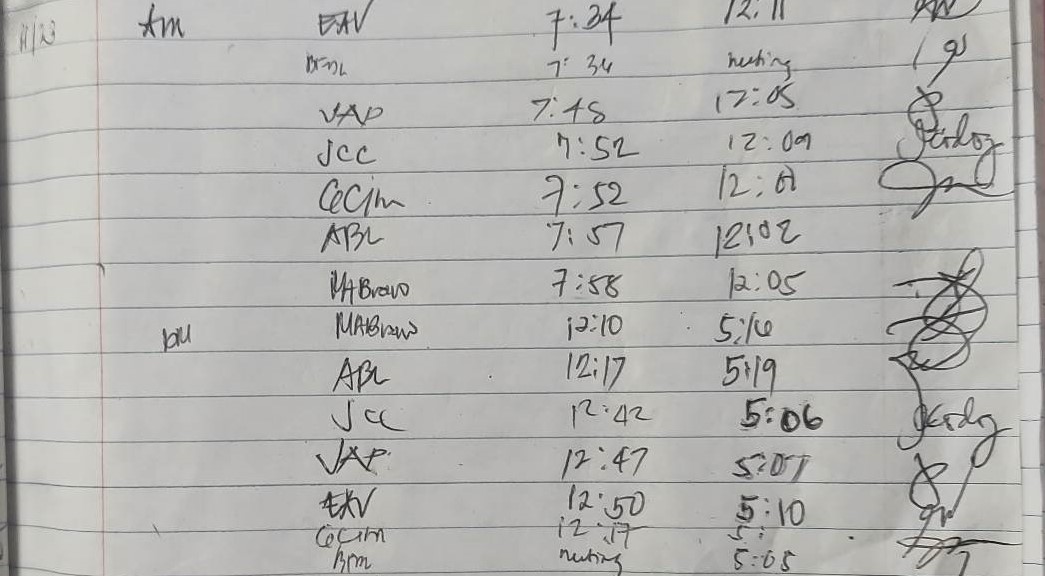 11/23 Am EAV 7:34 12:11
7:34 meeting
JAP 7:48 12:05
JCC 7:52 12:09
CeCim 7:52 12:01
ABL 7:57 12:02
MABravo 7:58 12:05
PM MABravo 12:10 5:16
ABL 12:17 5:19
JCC 12:42 5:06
JAP 12:47 5:07
EAV 12:50 5:10
CeCim 12:17 5:
BFM meeting 5:05